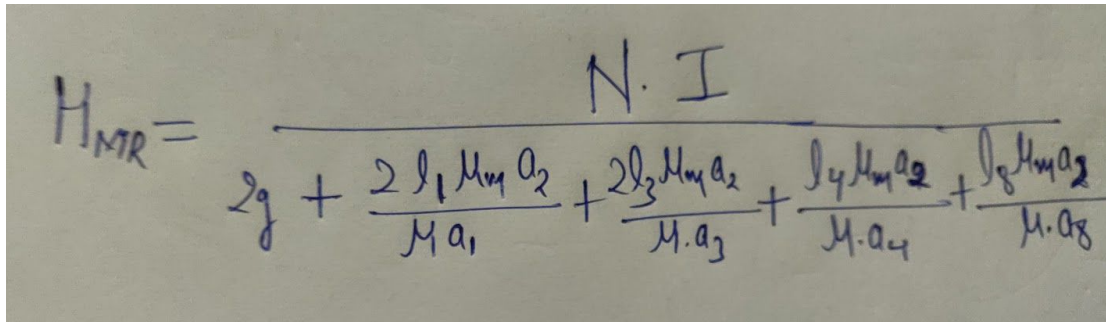 H_MR = \frac{N. I}{2g + \frac{2 l_1 μ_m a_2}{μ a_1} + \frac{2l_3 μ_m a_2}{μ. a_3} + \frac{l_4 μ_m a_2}{μ. a_4} + \frac{l_8 μ_m a_2}{μ. a_8}}